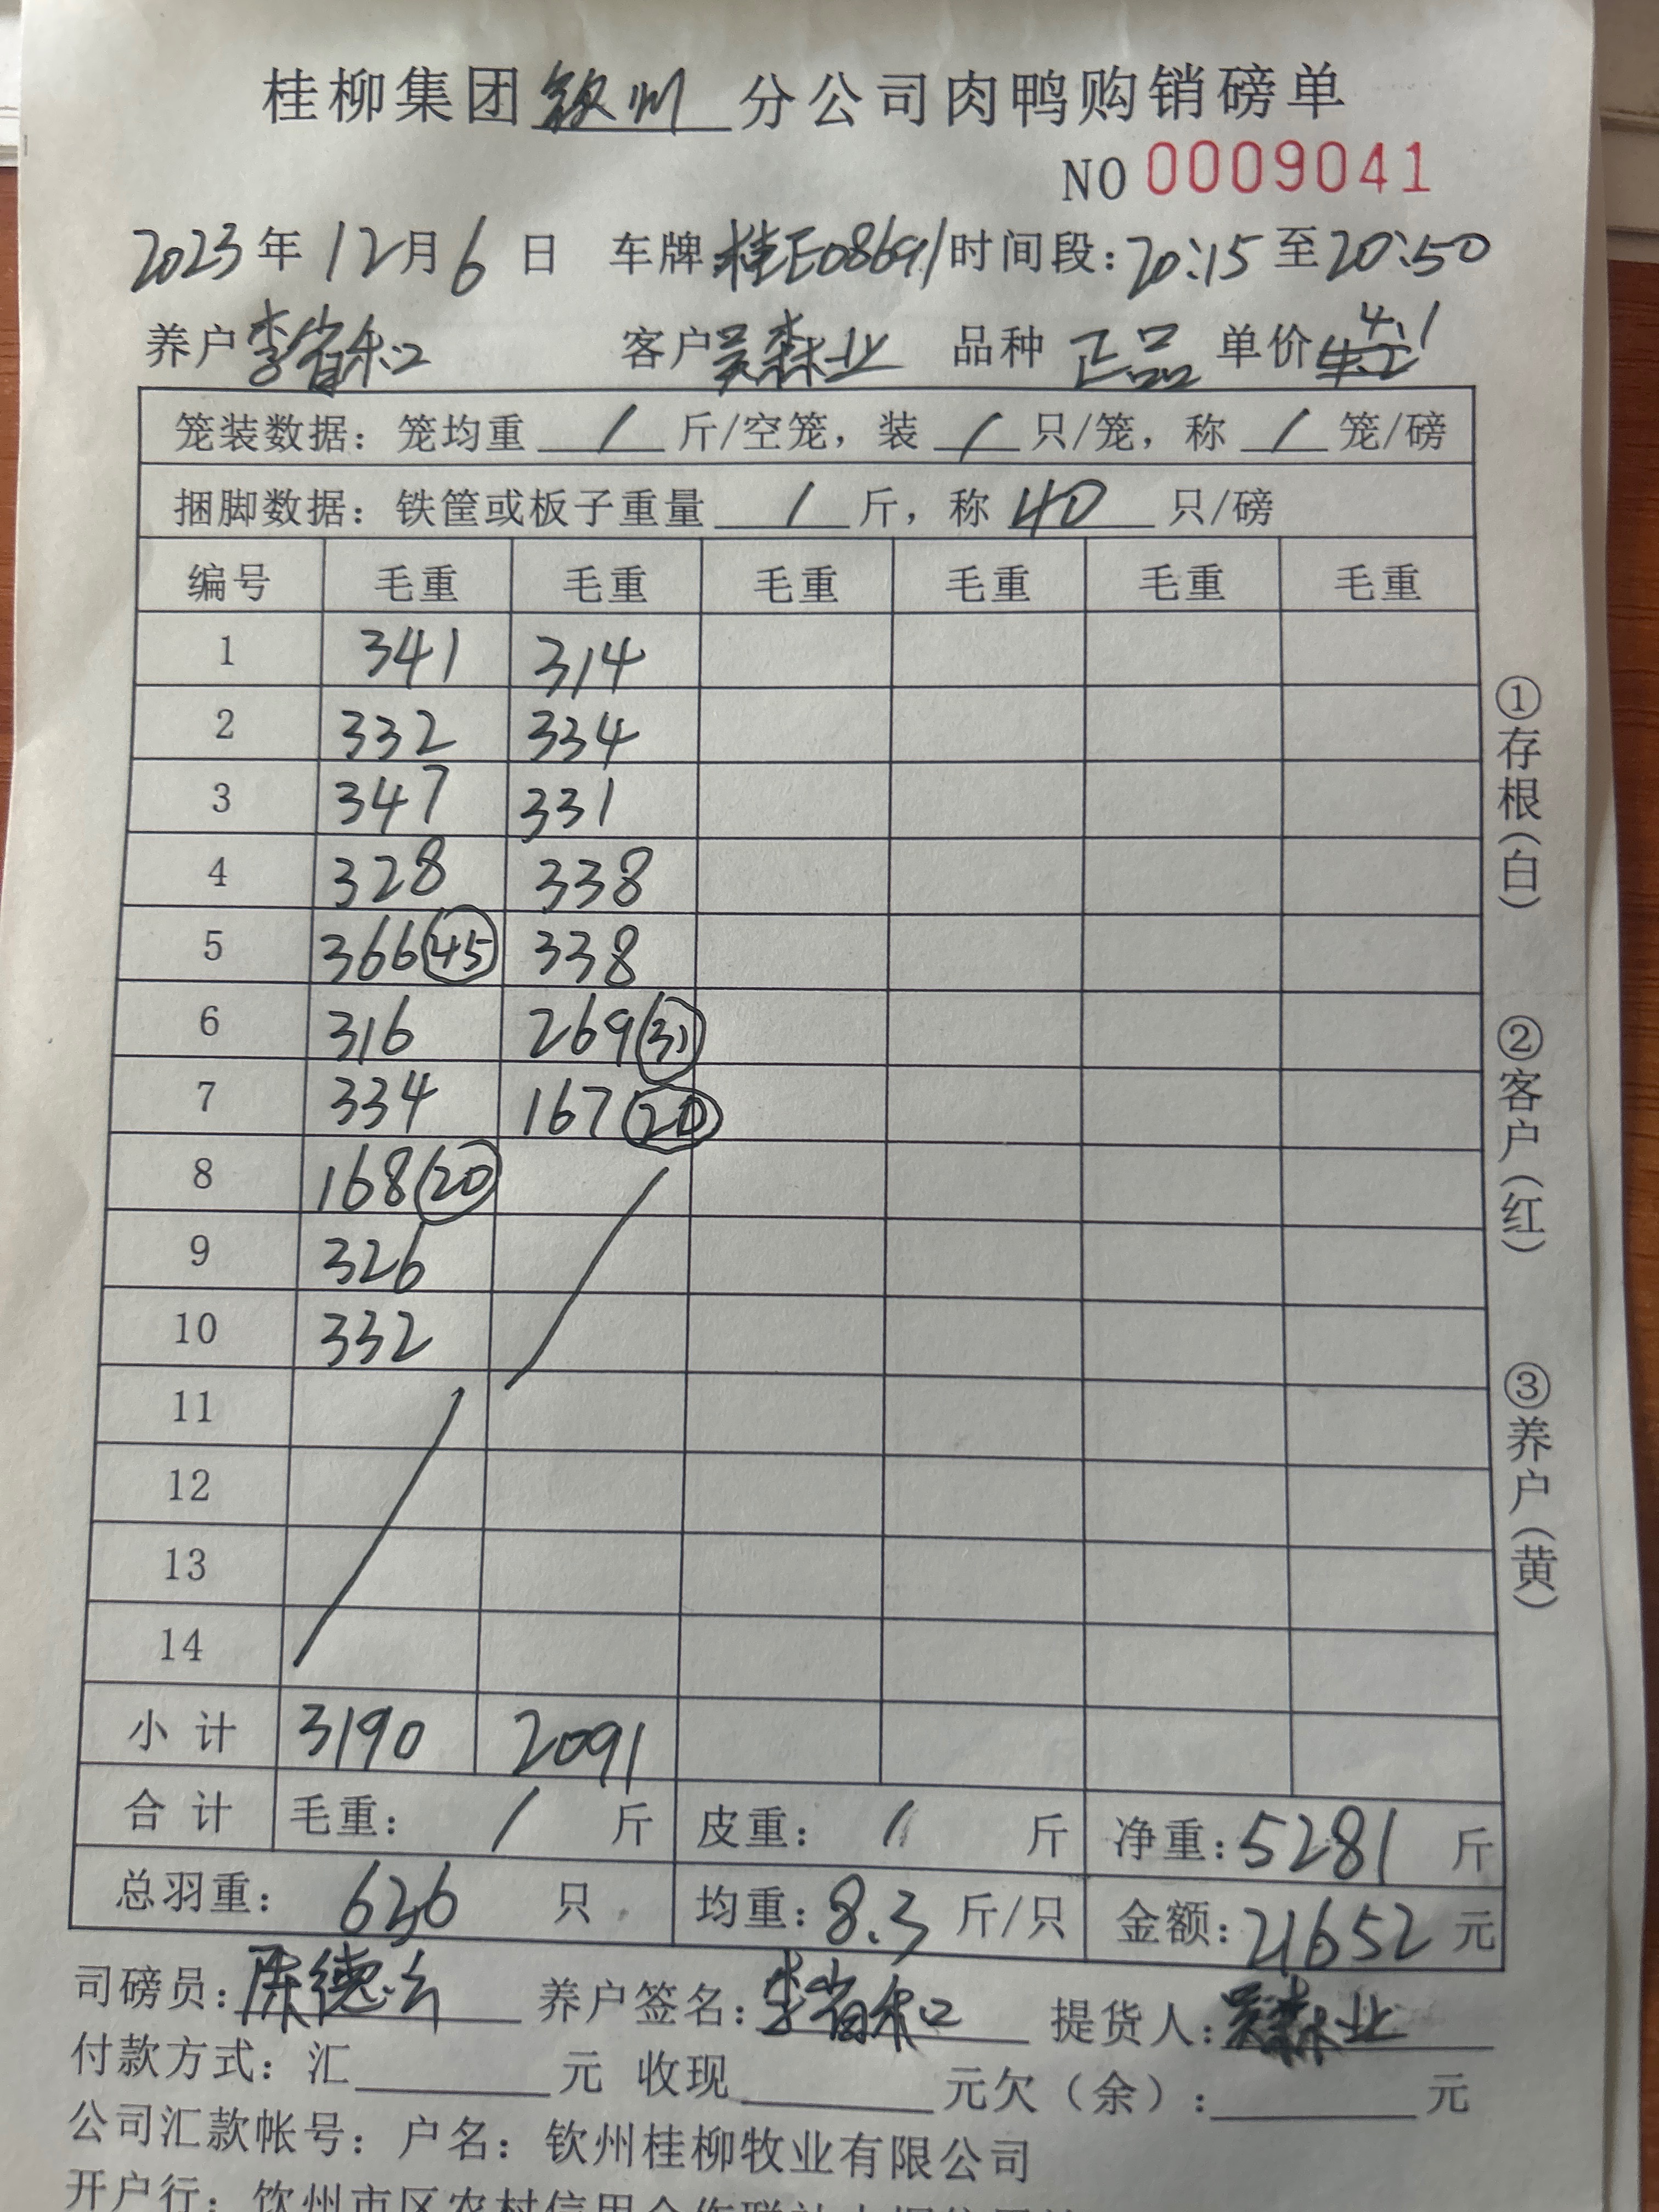 桂柳集团钦州分公司肉鸭购销磅单
NO 0009041
2023年12月6日 车牌:桂E08691 时间段:20:15至20:50
养户李省和 客户吴森业 品种 正品 单价 4.1
笼装数据:笼均重 / 斤/空笼,装 / 只/笼,称 / 笼/磅
捆脚数据:铁筐或板子重量 / 斤,称 40 只/磅
编号 毛重 毛重 毛重 毛重 毛重 毛重
1 341 314
2 332 334
3 347 331
4 328 338
5 366 (45) 338
6 316 269 (31)
7 334 167 (20)
8 168 (20)
9 326
10 332
11
12
13
14
小计 3190 2091
合计 毛重: / 斤 皮重: / 斤 净重:5281 斤
总羽重: 636 只 均重:8.3 斤/只 金额:21652 元
司磅员:陈德云 养户签名:李省和 提货人:吴森业
付款方式:汇 元 收现 元欠(余): 元
公司汇款帐号:户名:钦州桂柳牧业有限公司
开户行:钦州市区农村信用合作联社
①存根(白)
②客户(红)
③养户(黄)